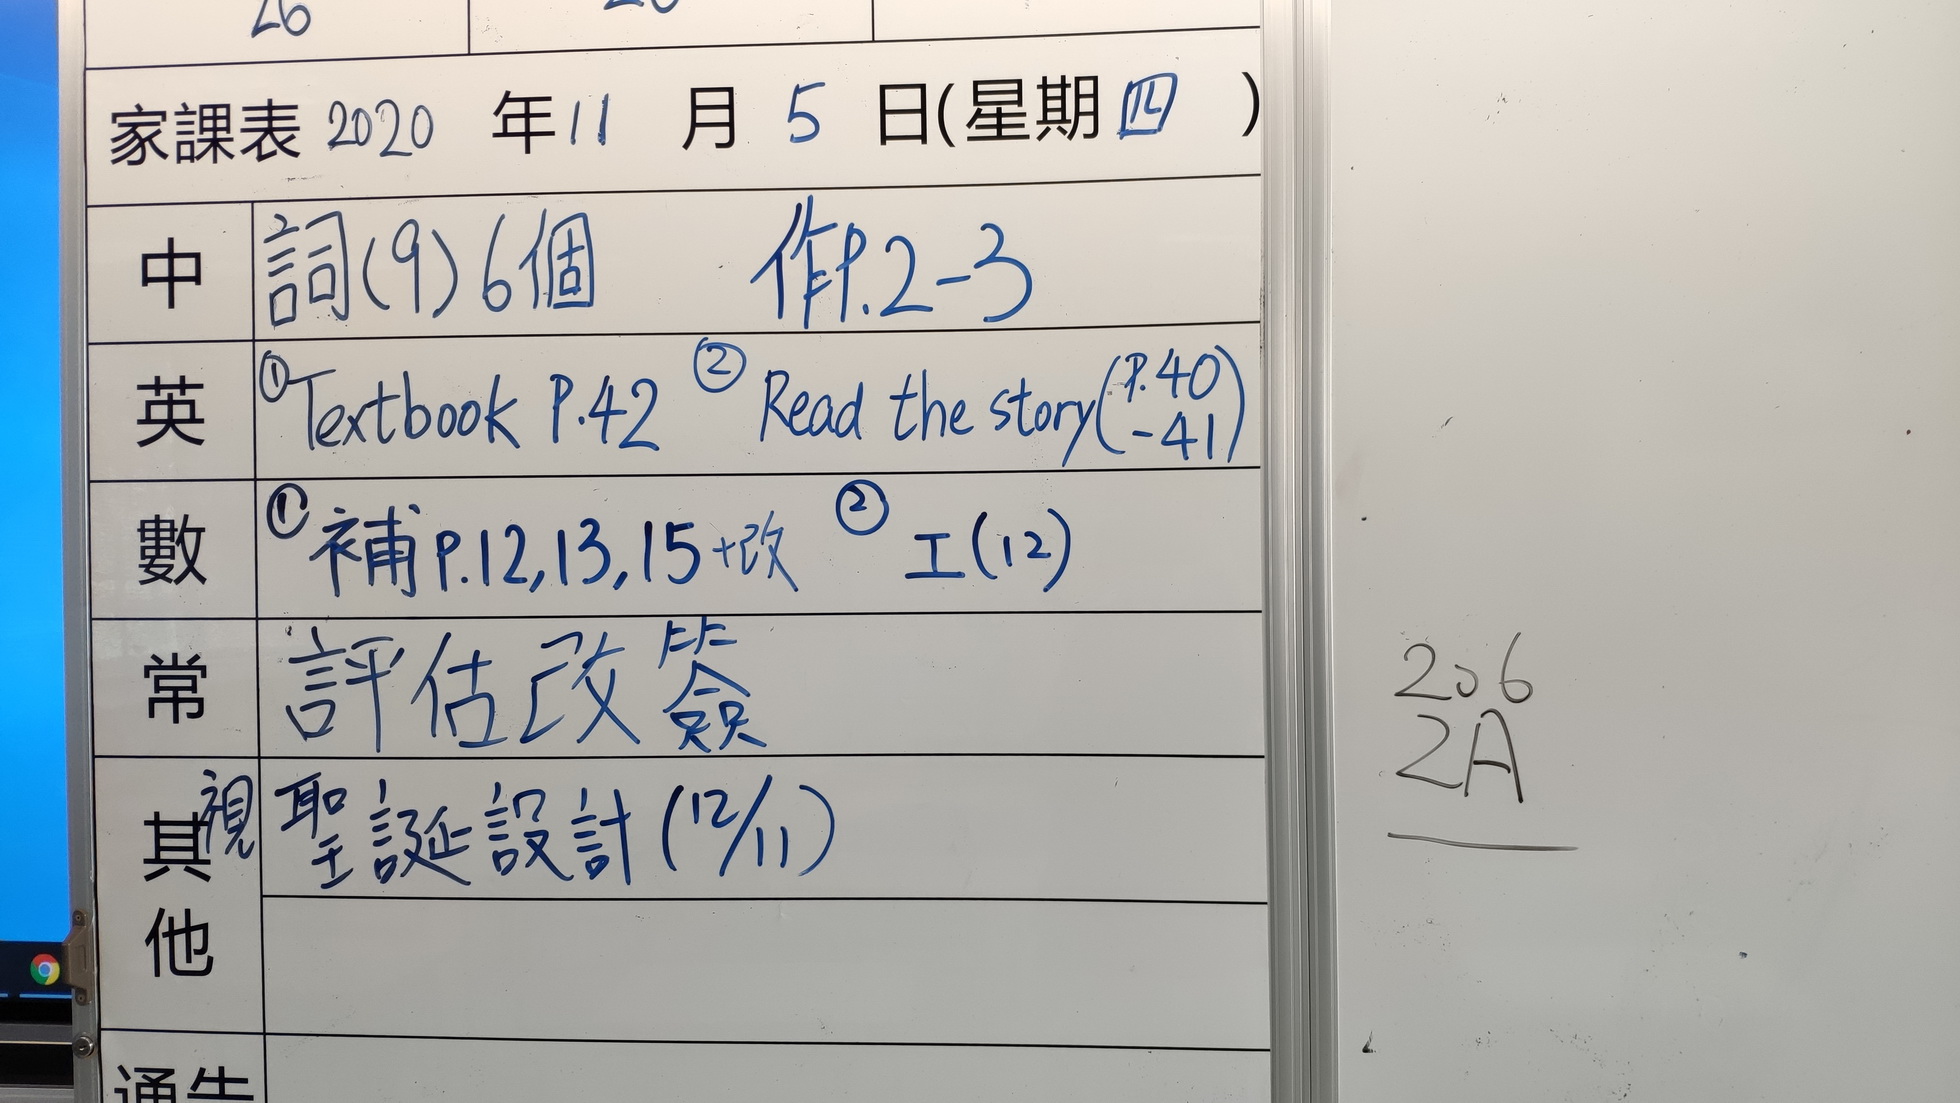 26
家課表 2020 年 11 月 5 日(星期四)
中 詞(9)6個 作P.2-3
英 ①Textbook P.42 ②Read the story(P.40-41)
數 ①補P.12,13,15+改 ②工(12)
常 評估改簽
其他 視 聖誕設計(12/11)
通告
206
2A